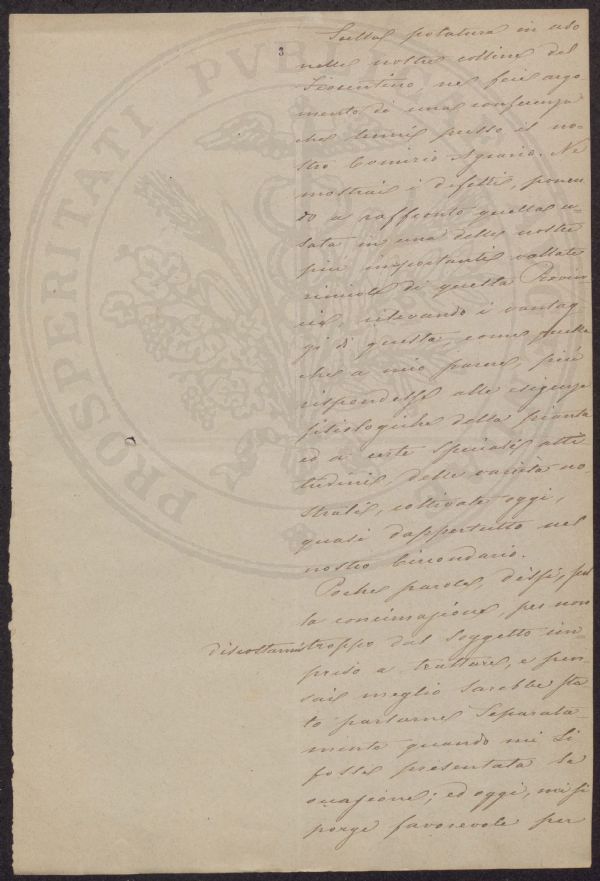 3
Sulla potatura in uso
nelle nostre colline del
Fiorentino, ne feci argo
mento di una conferenza
che tenni presso il no-
stro Comizio Agrario. Ne
mostrai i difetti, ponen
do a raffronto quella u-
sata in una delle nostre
più importanti vallate
vinicole di quella Provin
cia, rilevando i vantag
gi di questa, come quella
che a mio parere, più
rispondesse alle esigenze
fisiologiche della pianta
ed a certe speciali atti-
tudini delle varietà no-
strali, coltivate oggi,
quasi dappertutto nel
nostro Circondario.
Poche parole, dissi, sul
la concimazione, per non
discostarmi troppo dal soggetto im
preso a trattare, e pen
sai meglio sarebbe sta
to parlarne separata-
mente quando mi si
fosse presentata la
occasione; ed oggi, mi si
porge favorevole per
PROSPERITATI PVBLICAE